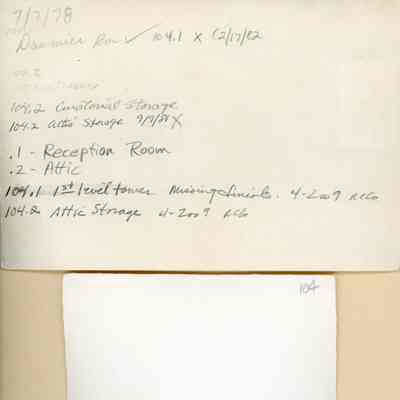 7/7/78
Room ✓ 104.1 X 12/17/82
104.2 Curatorial Storage
104.2 Attic Storage 9/9/88 X
.1 - Reception Room
.2 - Attic
104.1 1st level tower Missing finials. 4-2009 RCG
104.2 Attic Storage 4-2009 RCG
104